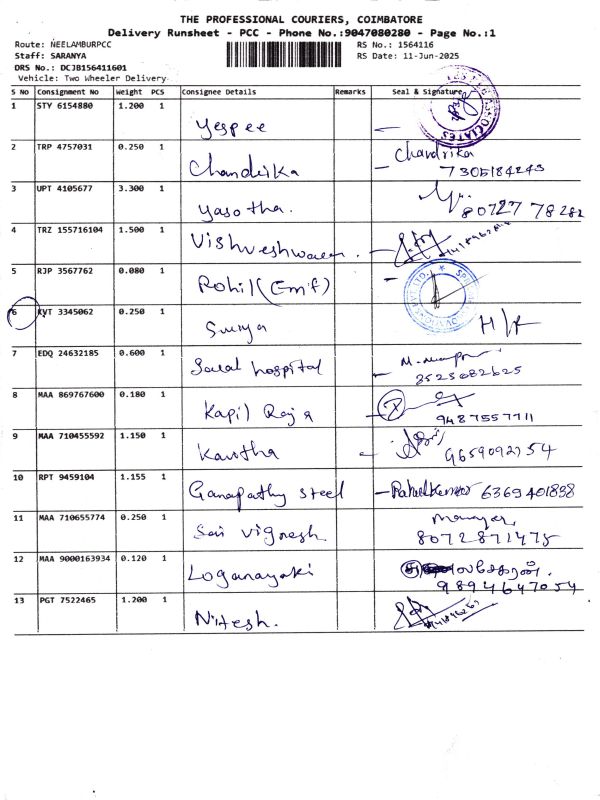 THE PROFESSIONAL COURIERS, COIMBATORE
Delivery Runsheet - PCC - Phone No.:9047080280 - Page No.:1
Route: NEELAMBURPCC RS No.: 1564116
Staff: SARANYA RS Date: 11-Jun-2025
DRS No.: DCJB156411601
Vehicle: Two Wheeler Delivery
S No Consignment No Weight PCS Consignee Details Remarks Seal & Signature
1 STY 6154880 1.200 1 Yespee
2 TRP 4757031 0.250 1 Chandrika Chandrika
7305184243
3 UPT 4105677 3.300 1 Yasotha. 80727 78282
4 TRZ 155716104 1.500 1 Vishveshwaran.
5 RJP 3567762 0.080 1 Rohil (Emf)
6 KVT 3345062 0.250 1 Surya H/R
7 EDQ 24632185 0.600 1 hospital
8523682625
8 MAA 869767600 0.180 1 Kapil Raja
9487557711
9 MAA 710455592 1.150 1 Kavitha 9659092754
10 RPT 9459104 1.155 1 Ganapathy steel 6369401898
11 MAA 710655774 0.250 1 Sai Vignesh Manager,
8072871475
12 MAA 9000163934 0.120 1 Loganayaki
9894647054
13 PGT 7522465 1.200 1 Nitesh.